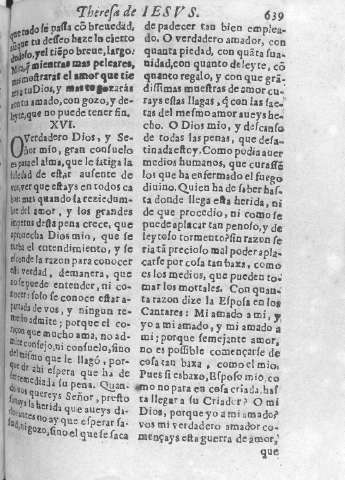 Theresa de IESVS. 639
que todo se passa cõ breuedad,
aunque tu desseo haze lo cierto
dudoso, y el tiẽpo breue, largo.
Mira q̃ mientras mas peleares,
mas mostraras el amor que tie
nes a tu Dios, y mas te gozaràs
con tu amado, con gozo, y de-
leyte, que no puede tener fin.
XVI.
O Verdadero Dios, y Se-
ñor mio, gran consuelo
es para el alma, que le fatiga la
soledad de estar ausente de
vos, ver que estays en todos ca
bos: mas quando la rezie dum-
bre del amor, y los grandes
impetus desta pena crece, que
aprouecha Dios mio, que se
turba el entendimiento, y se
esconde la razon para conocer
esta verdad, demanera, que
no se puede entender, ni co-
nocer: solo se conoce estar a-
partada de vos, y ningun re-
medio admite; porque el co-
raçon que mucho ama, no ad-
mite consejo, ni consuelo, sino
del mismo que le llagó, por-
que de ahi espera que ha de
ser remediada su pena. Quan-
do vos quereys Señor, presto
sanays la herida que aueys da-
do: antes no ay que esperar sa-
lud, ni gozo, sino el que se saca
de padecer tan bien emplea-
do. O verdadero amador, con
quanta piedad, con quãta sua-
uidad, con quanto deleyte, cõ
quanto regalo, y con que grã-
dissimas muestras de amor cu-
rays estas llagas, q̃ con las sae-
tas del mesmo amor aueys he-
cho. O Dios mio, y descanso
de todas las penas, que desa-
tinada estoy. Como podia auer
medios humanos, que curassẽ
los que ha enfermado el fuego
diuino. Quien ha de saber has-
ta donde llega esta herida, ni
de que procedio, ni como se
puede aplacar tan penoso, y de
leytoso tormento? sin razon se
ria tã precioso mal poder apla-
carse por cosa tan baxa, como
es los medios, que pueden to-
mar los mortales. Con quan-
ta razon dize la Esposa en los
Cantares: Mi amado a mi, y
yo a mi amado, y mi amado a
mi; porque semejante amor,
no es possible començarse de
cosa tan baxa, como el mio.
Pues si es baxo, Esposo mio, co
mo no para en cosa criada, has
ta llegar a su Criador? O mi
Dios, porque yo a mi amado?
vos mi verdadero amador co-
mençays esta guerra de amor,
que